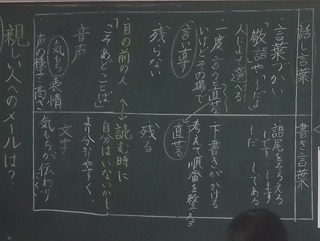 話し言葉
言葉づかい
「敬語やしたしだよ
人によって選べる
一度言う言葉を
いけどその場で
言い直す
残らない
目の前の人
「こそあどことば」
音声
気もち 表情
声の様子 高さ
書き言葉
語尾をそろえる
してある
下書きがかける
考えて順番を整える
直せる
残る
読む時に
自分はいないから
より分かりやすく
文字
気もちが伝わりにくく
親しい人へのメールは？